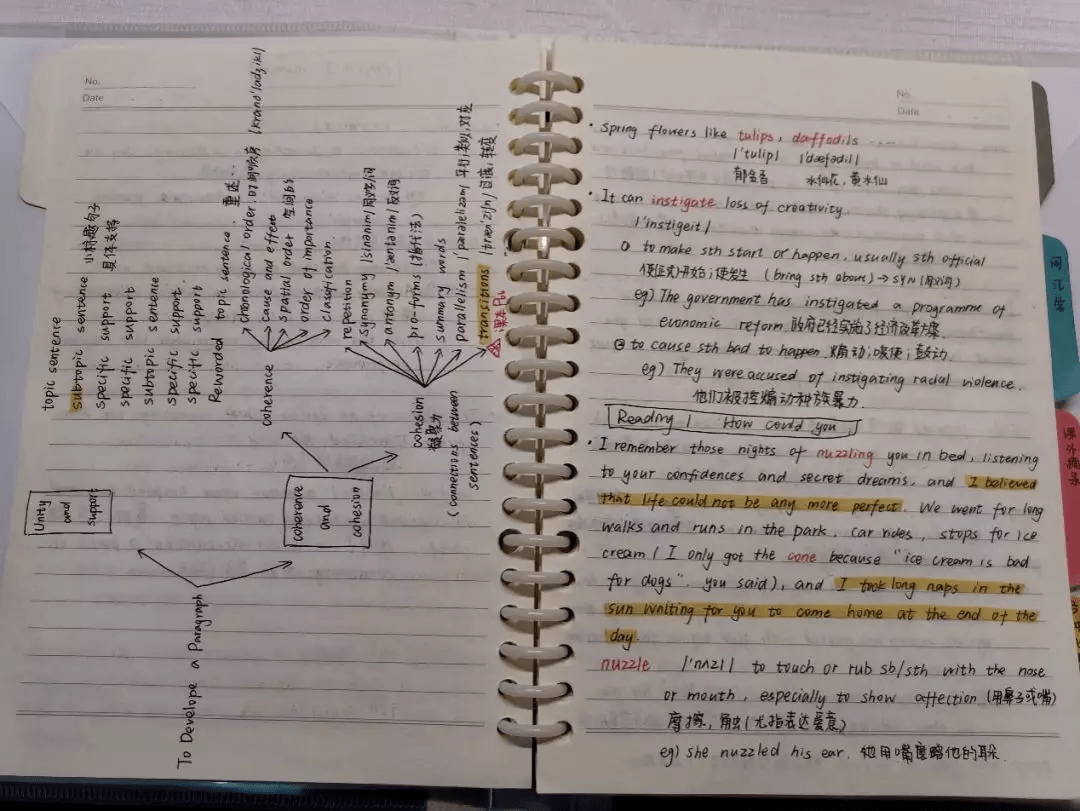 No.
Date
To Develope a Paragraph
Unity
and
support
topic sentence
subtopic sentence 小标题句子
specific support 具体支撑
specific support
subtopic sentence
specific support.
specific support
Reworded topic sentence. 重述..
coherence
and
cohesion
coherence
chonological order. 时间顺序
cause and effect
spatial order 空间
order of importance
classification.
cohesion
凝聚力
(connections between
sentences)
repetition
synonymy /sinənim/ 同义词
antonym /æntənim/ 反义词
pro-forms (指代法)
summary words
parallelism /'pærəlelizəm/ 平行;类似,对应
transitions /træn'ziʃn/ 过渡;转变
课本
No.
Date
· Spring flowers like tulips, daffodils ......
/'tulip/ /'dæfədil/
郁金香 水仙花,黄水仙
· It can instigate loss of creativity.
/'instigeit/
① to make sth start or happen, usually sth official
使(正式)开始;使发生 (bring sth about) → SYN (同义词)
eg) The government has instigated a programme of
economic reform. 政府已经实施了经济改革方案.
② to cause sth bad to happen. 煽动;唆使;鼓动.
eg) They were accused of instigating racial violence.
他们被控煽动种族暴力.
Reading 1 How could you
· I remember those nights of nuzzling you in bed, listening
to your confidences and secret dreams, and I believed
that life could not be any more perfect. We went for long
walks and runs in the park, car rides, stops for ice
cream ( I only got the cone because "ice cream is bad
for dogs". you said), and I took long naps in the
sun waiting for you to come home at the end of the
day.
nuzzle /'nʌzl/ to touch or rub sb/sth with the nose
or mouth, especially to show affection (用鼻子或嘴)
摩擦,触(尤指表达爱意)
eg) she nuzzled his ear. 她用嘴摩 他的耳朵.
词汇
课外摘录